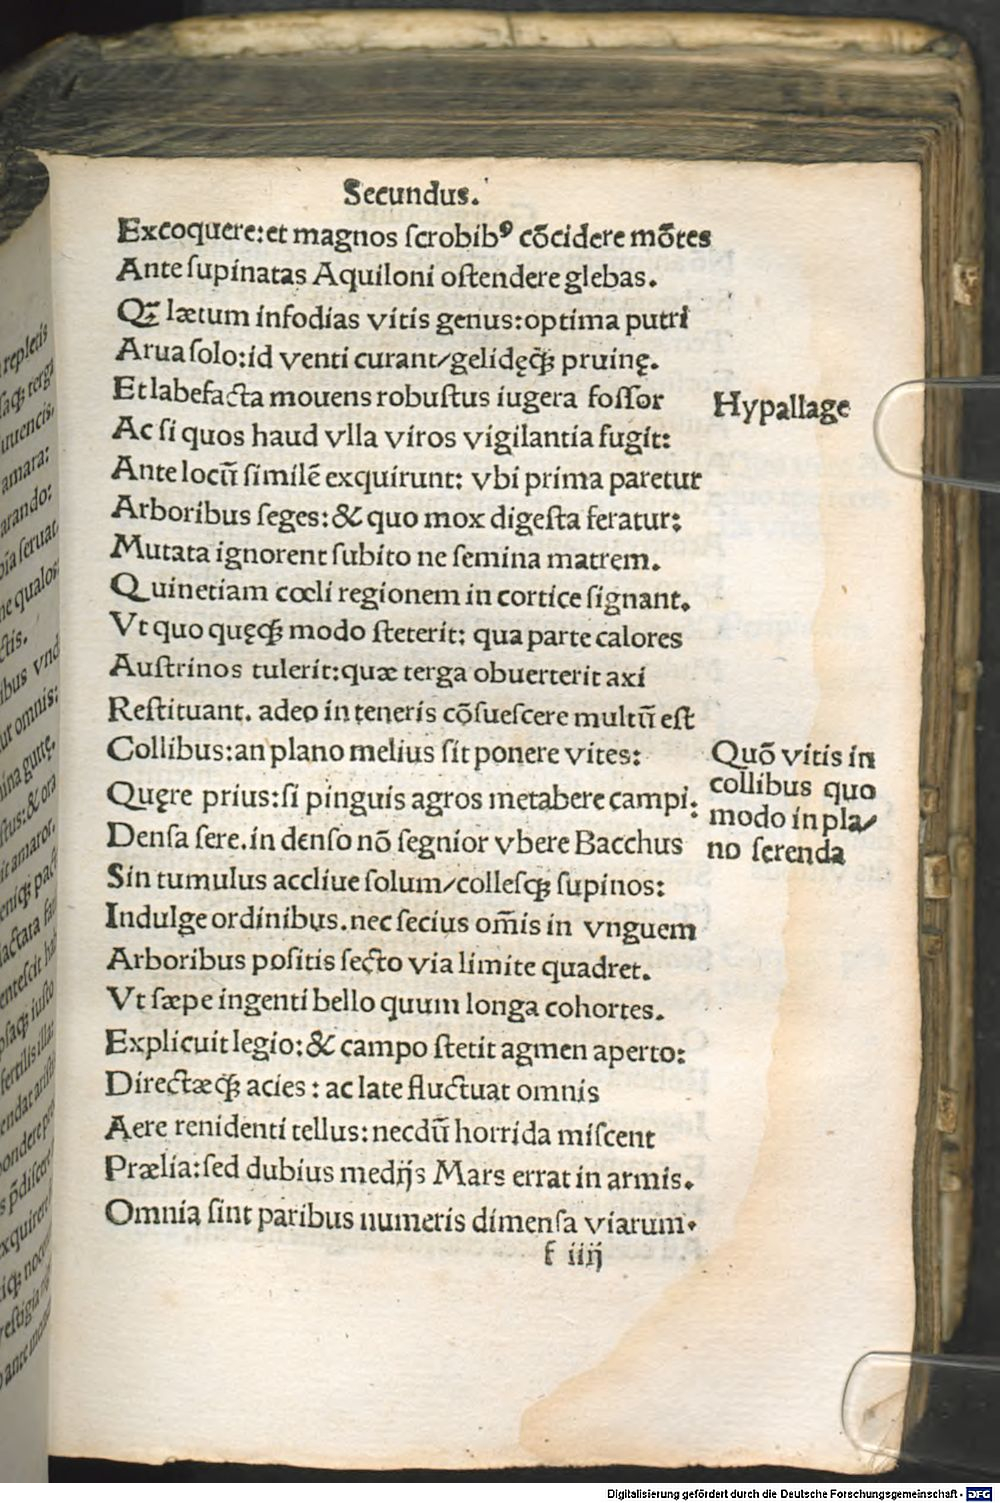 Secundus.
Excoquere:et magnos ſcrobibꝰ cõcidere mõtes
Ante ſupinatas Aquiloni oſtendere glebas.
Qꝫ̃ lætum infodias vitis genus:optima putri
Arua ſolo:id venti curant/gelidęqꝫ pruinę.
Et labefacta mouens robuſtus iugera foſſor
Hypallage
Ac ſi quos haud vlla viros vigilantia fugit:
Ante locũ ſimilẽ exquirunt: vbi prima paretur
Arboribus ſeges:& quo mox digeſta feratur:
Mutata ignorent ſubito ne ſemina matrem.
Quinetiam cœli regionem in cortice ſignant.
Vt quo quęqꝫ modo ſteterit: qua parte calores
Auſtrinos tulerit:quæ terga obuerterit axi
Reſtituant. adeo in teneris cõſueſcere multũ eſt
Collibus:an plano melius ſit ponere vites:
Quęre prius:ſi pinguis agros metabere campi.
Denſa ſere.in denſo nõ ſegnior vbere Bacchus
Quõ vitis in
collibus quo
modo in pla/
no ſerenda
Sin tumulus accliue ſolum/colleſqꝫ ſupinos:
Indulge ordinibus.nec ſecius om̃is in vnguem
Arboribus poſitis ſecto via limite quadret.
Vt ſæpe ingenti bello quum longa cohortes.
Explicuit legio:& campo ſtetit agmen aperto:
Directæqꝫ acies: ac late fluctuat omnis
Aere renidenti tellus:necdũ horrida miſcent
Prælia:ſed dubius medijs Mars errat in armis.
Omnia ſint paribus numeris dimenſa viarum.
f iiij
repletis
terga
uuencis,
amara:
arando:
ſeruat.
qualos
ctis.
ibus vnd
omnis:
guttę.
& ora
amaror.
Digitalisierung gefördert durch die Deutsche Forschungsgemeinschaft - DFG